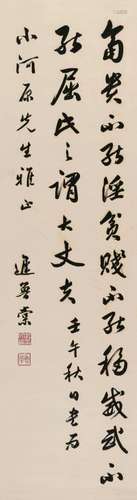 富貴不能淫貧賤不能移威武不
能屈此之謂大丈夫 壬午秋日書為
小河原先生雅正
棠